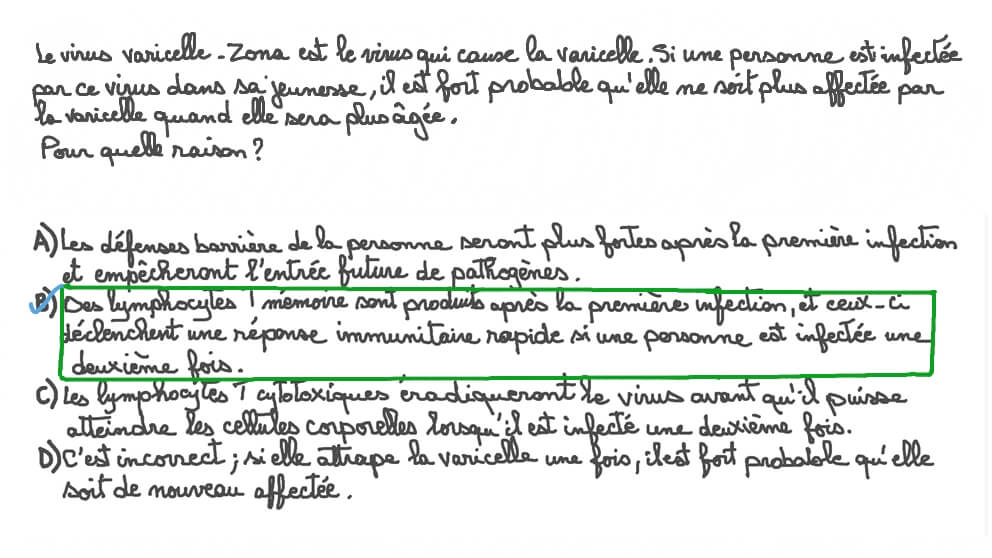 Le virus varicelle-Zona est le virus qui cause la varicelle. Si une personne est infectée
par ce virus dans sa jeunesse, il est fort probable qu'elle ne soit plus affectée par
la varicelle quand elle sera plus âgée.
Pour quelle raison ?
A) Les défenses barrière de la personne seront plus fortes après la première infection
et empêcheront l'entrée future de pathogènes.
B) Des lymphocytes T mémoire sont produits après la première infection, et ceux-ci
déclenchent une réponse immunitaire rapide si une personne est infectée une
deuxième fois.
C) Les lymphocytes T cytotoxiques éradiqueront le virus avant qu'il puisse
atteindre les cellules corporelles lorsqu'il est infecté une deuxième fois.
D) C'est incorrect ; si elle attrape la varicelle une fois, il est fort probable qu'elle
soit de nouveau affectée.